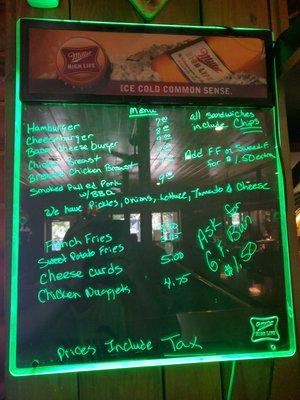 Miller
HIGH LIFE
Miller
HIGH LIFE
ICE COLD COMMON SENSE.
Menu
Hamburger
Cheeseburger
Bacon Cheese burger
Chicken Breast
Smoked Pulled Pork
w/BBQ
all sandwiches
include Chips
Add FF or Sweet F
for $1.50 extra
We have Pickles, Onions, Lettuce, Tomato & Cheese
French Fries
Sweet Potato Fries
Cheese Curds 5.00
Chicken Nuggets 4.75
Ask for
G.F. Bun
$1.50
Prices Include Tax
Miller
HIGH LIFE